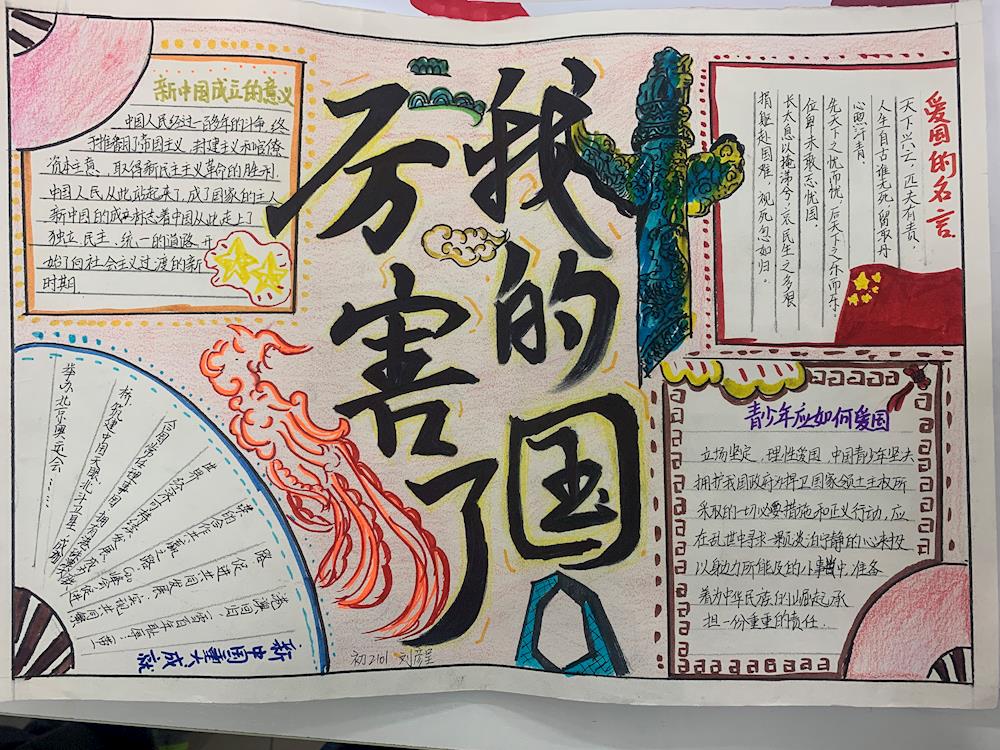 我的国
厉害了
新中国成立的意义
中国人民经过一百多年的斗争,终
于推翻了帝国主义,封建主义和官僚
资本主意,取得新民主主义革命的胜利.
中国人民从此站起来了,成了国家的主人
新中国的成立标志着中国从此走上了
独立,民主,统一的道路,开
始了向社会主义过渡的新
时期.
爱国的名言
天下兴亡,匹夫有责.
人生自古谁无死,留取丹
心照汗青.
先天下之忧而忧,后天下之乐而乐.
位卑未敢忘忧国.
长太息以掩涕兮,哀民生之多艰
捐躯赴国难,视死忽如归.
青少年应如何爱国
立场坚定,理性爱国,中国青少年坚决
拥护我国政府为捍卫国家领土主权所
采取的一切必要措施和正义行动,应
在乱世中寻求一颗淡泊宁静的心来投
以身力所能及的小事中,准备
着为中华民族的崛起承
担一份重重的责任.
新中国重大成就
港澳回归,一雪百年耻辱;一
路,促进共同发展,实现共同
赢的合作共赢之路
世界经济可持续发展,
合国常任理事国,拥有
桥,筑建中国天眼,北斗卫星,
举办北京奥运会……
初2101 刘彦呈